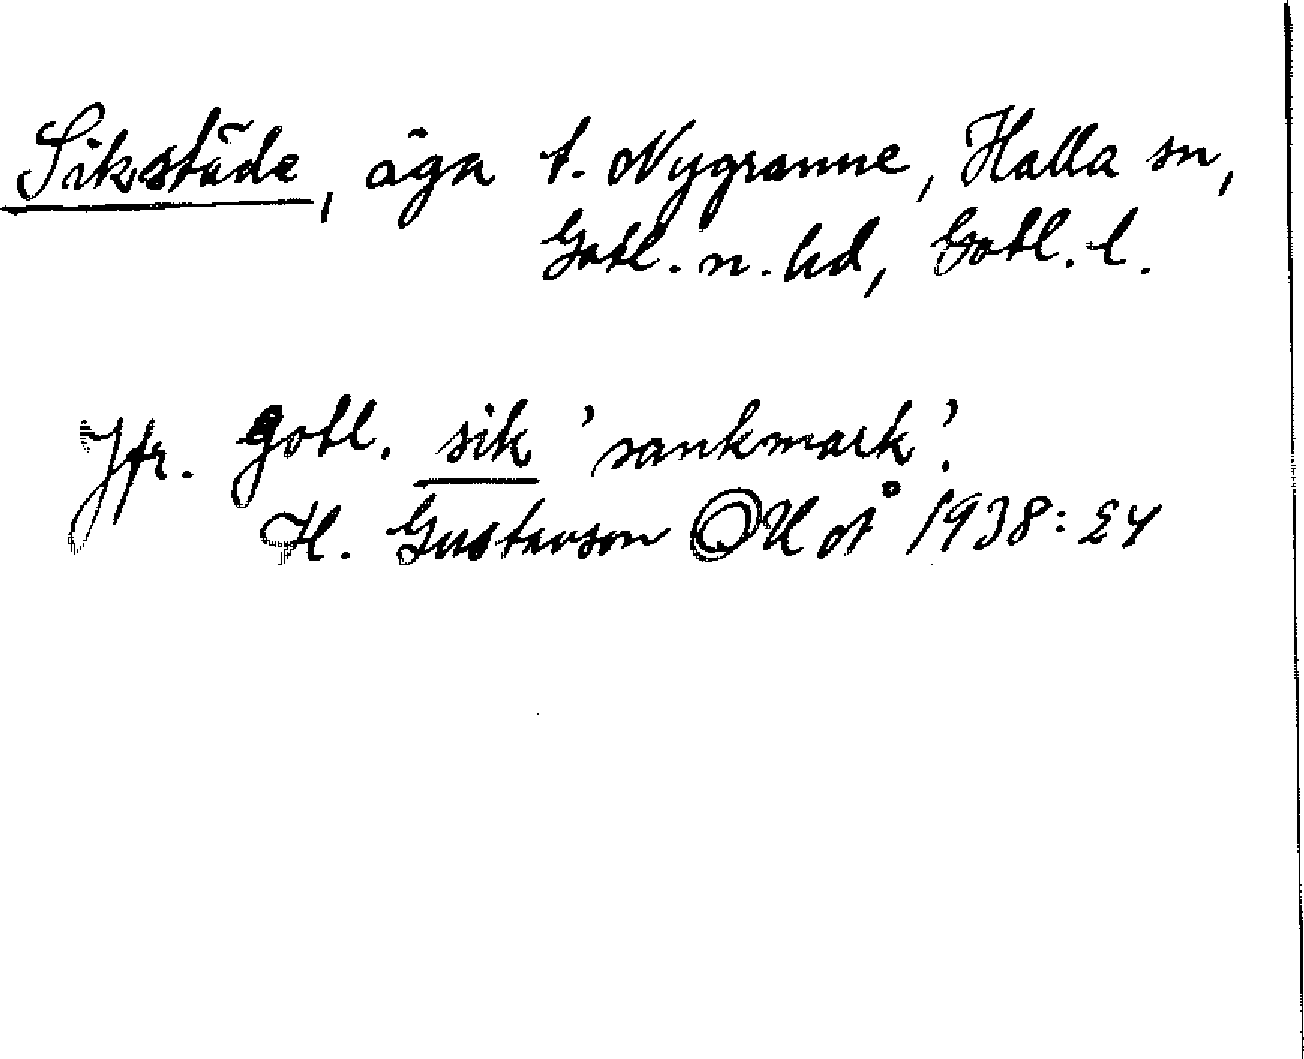 Sikstäde, äga t. Nygranne, Halla sn,
Gotl. n. hd, Gotl. l.
Jfr. gotl. sik 'sankmark'.
H. Gustavson OUOÅ 1938: 24